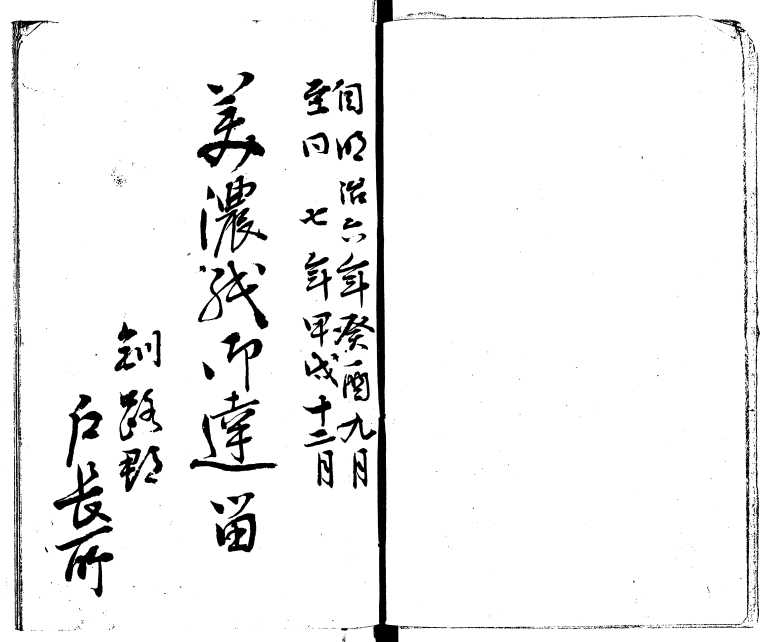 自明治六年癸酉九月
至同七年甲戌十二月
美濃紙御達留
釧路郡
戸長所